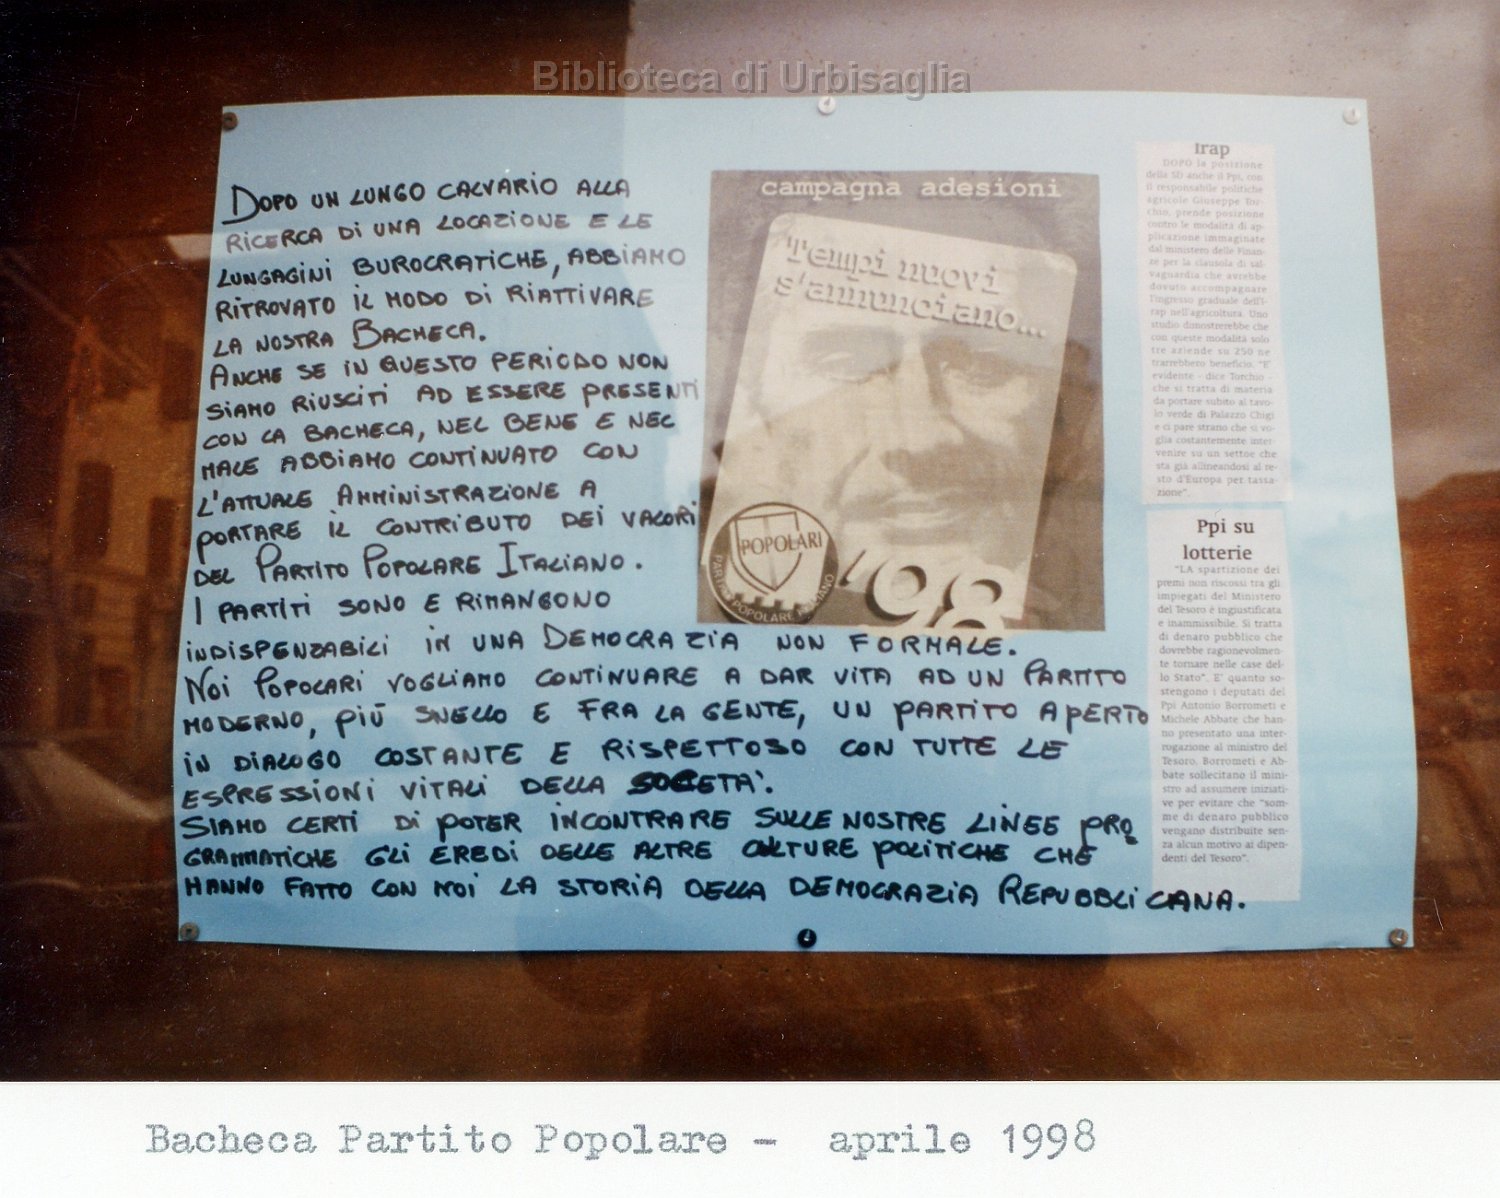 Biblioteca di Urbisaglia
DOPO UN LUNGO CALVARIO ALLA
RICERCA DI UNA LOCAZIONE E LE
LUNGAGINI BUROCRATICHE, ABBIAMO
RITROVATO IL MODO DI RIATTIVARE
LA NOSTRA BACHECA.
ANCHE SE IN QUESTO PERIODO NON
SIAMO RIUSCITI AD ESSERE PRESENTI
CON LA BACHECA, NEL BENE E NEL
MALE ABBIAMO CONTINUATO CON
L'ATTUALE AMMINISTRAZIONE A
PORTARE IL CONTRIBUTO DEI VALORI
DEL PARTITO POPOLARE ITALIANO.
I PARTITI SONO E RIMANGONO
INDISPENZABILI IN UNA DEMOCRAZIA NON FORMALE.
NOI POPOLARI VOGLIAMO CONTINUARE A DAR VITA AD UN PARTITO
MODERNO, PIÙ SNELLO E FRA LA GENTE, UN PARTITO APERTO
IN DIALOGO COSTANTE E RISPETTOSO CON TUTTE LE
ESPRESSIONI VITALI DELLA SOCIETA'.
SIAMO CERTI DI POTER INCONTRARE SULLE NOSTRE LINEE PRO
GRAMMATICHE GLI EREDI DELLE ALTRE CULTURE POLITICHE CHE
HANNO FATTO CON NOI LA STORIA DELLA DEMOCRAZIA REPUBBLICANA.
campagna adesioni
Tempi nuovi
s'annunciano...
POPOLARI
PARTITO POPOLARE ITALIANO
'98
Irap
DOPO la posizione
della SD anche il Ppi, con
il responsabile politiche
agricole Giuseppe Tor-
chio, prende posizione
contro le modalità di ap-
plicazione immaginate
dal ministero delle Finan-
ze per la clausola di sal-
vaguardia che avrebbe
dovuto accompagnare
l'ingresso graduale dell'I-
rap nell'agricoltura. Uno
studio donostrerebbe che
con queste modalità solo
tre aziende su 250 ne
trarrebbero beneficio. "E'
evidente - dice Torchio -
che si tratta di materia
da portare subito al tavo-
lo verde di Palazzo Chigi
e ci pare strano che si vo-
glia costantemente inter-
venire su un settore che
sta già allineandosi al re-
sto d'Europa per tassa-
zione".
Ppi su
lotterie
"LA spartizione dei
premi non riscossi tra gli
impiegati del Ministero
del Tesoro è ingiustificata
e inammissibile. Si tratta
di denaro pubblico che
dovrebbe ragionevolmen-
te tornare nelle case del-
lo Stato". E' quanto so-
stengono i deputati del
Ppi Antonio Borrometi e
Michele Abbate che han-
no presentato una inter-
rogazione al ministro del
Tesoro. Borrometi e Ab-
bate sollecitano il mini-
stro ad assumere iniziati-
ve per evitare che "som-
me di denaro pubblico
vengano distribuite sen-
za alcun motivo ai dipen-
denti del Tesoro".
Bacheca Partito Popolare - aprile 1998